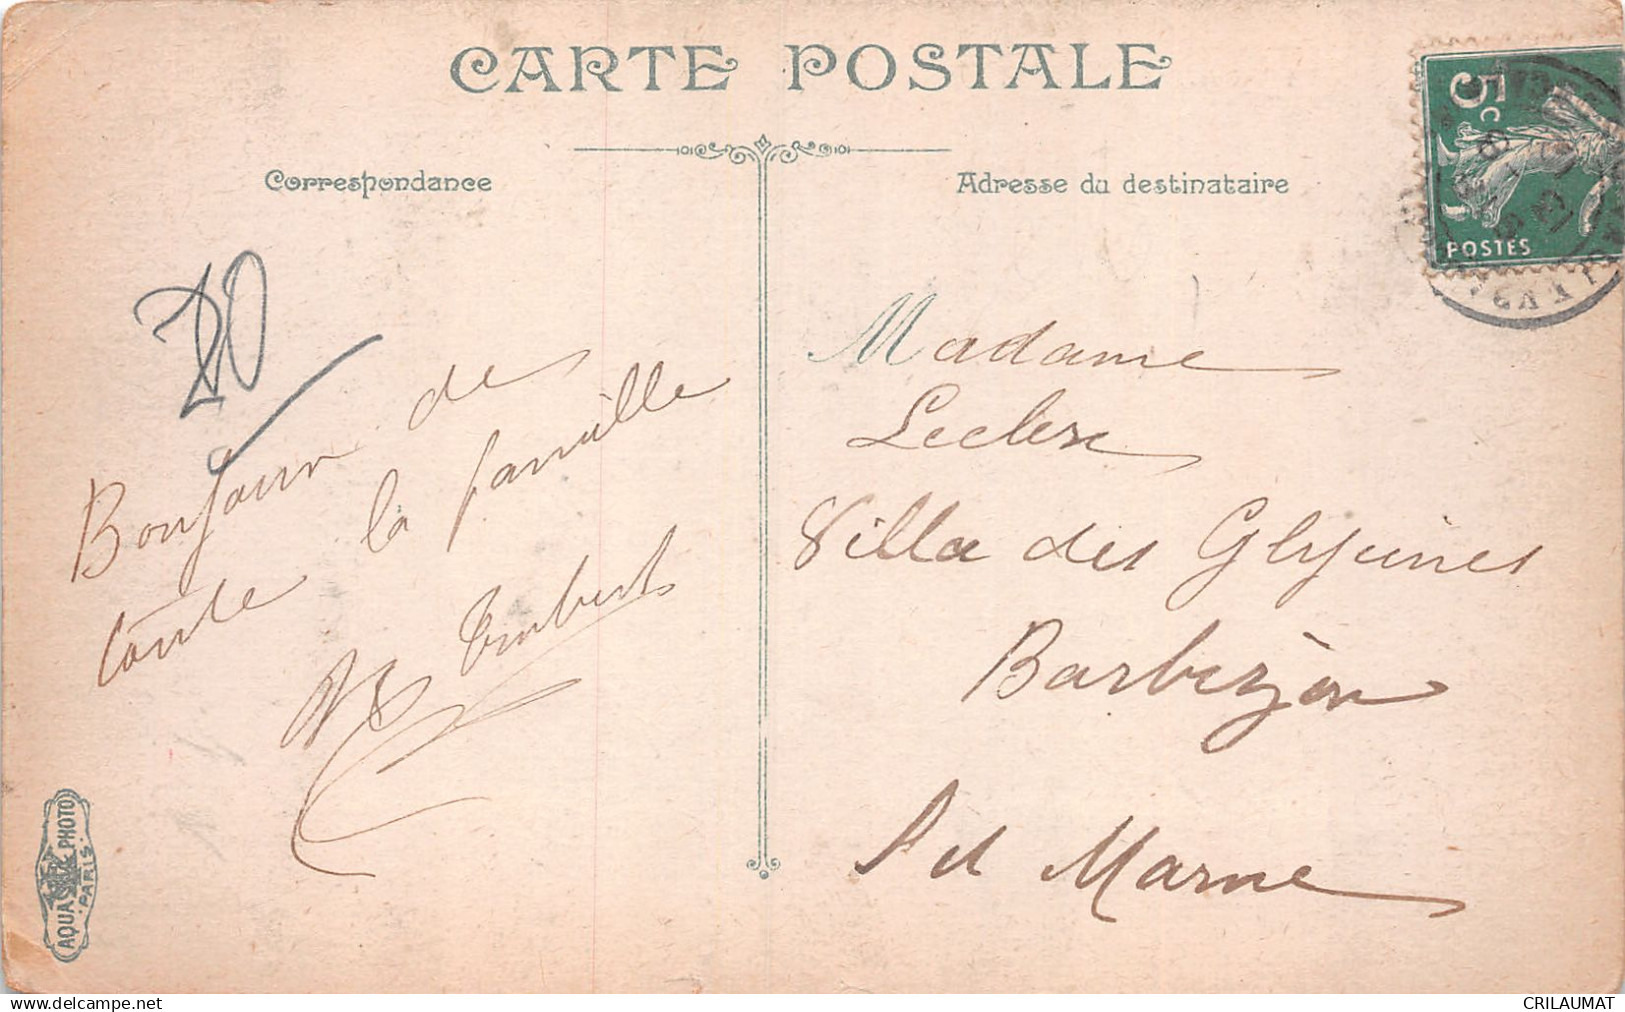 CARTE POSTALE
Correspondance
Adresse du destinataire
5c
POSTES
20
Bonjour de
toute la famille
Imbert
Madame
Leclerc
Villa des Glycines
Barbizon
S et Marne
AQUA PHOTO
PARIS
www.delcampe.net
CRILAUMAT